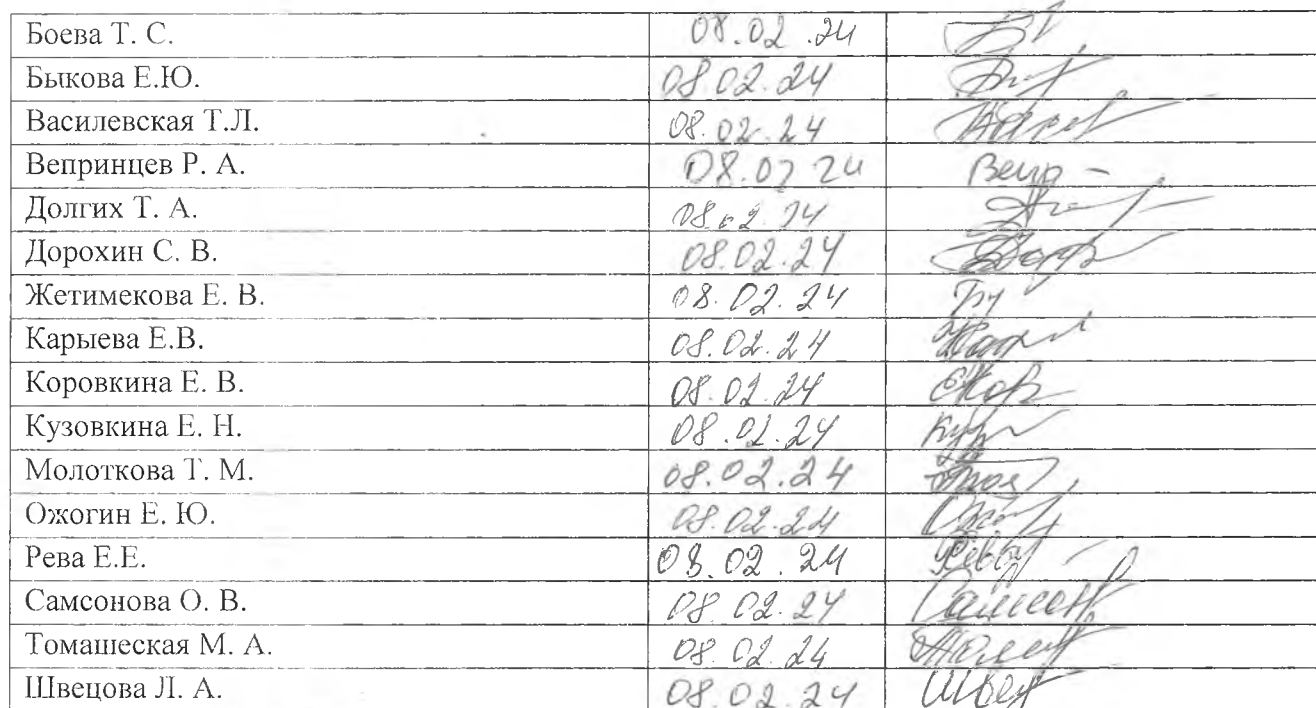 Боева Т. С. 08.02.24
Быкова Е.Ю. 08.02.24
Василевская Т.Л. 08.02.24
Вепринцев Р. А. 08.02 24
Долгих Т. А. 08.02.24
Дорохин С. В. 08.02.24
Жетимекова Е. В. 08.02.24
Карыева Е.В. 08.02.24
Коровкина Е. В. 08.02.24
Кузовкина Е. Н. 08.02.24
Молоткова Т. М. 08.02.24
Ожогин Е. Ю. 08.02.24
Рева Е.Е. 08.02.24
Самсонова О. В. 08.02.24
Томашеская М. А. 08.02.24
Швецова Л. А. 08.02.24